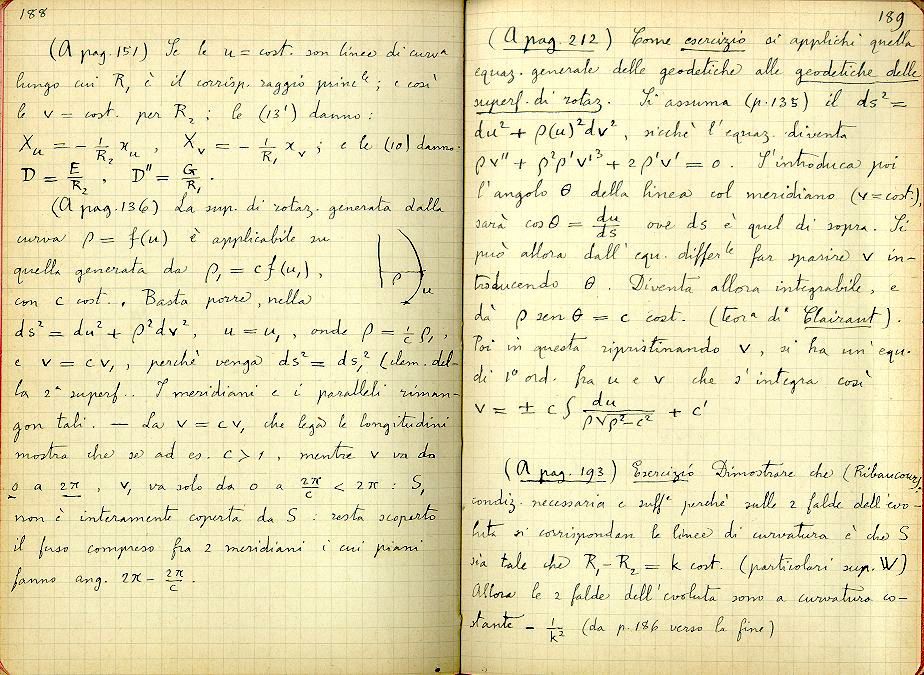 188
(A pag. 151) Se le u = cost. son linee di curvª
lungo cui R₁ è il corrisp. raggio princˡᵉ; e così
le v = cost. per R₂; le (13') danno:
Xᵤ = - 1/R₂ xᵤ , Xᵥ = - 1/R₁ xᵥ ; e le (10) danno:
D = E/R₂ , D'' = G/R₁ .
(A pag. 136) La sup. di rotaz. generata dalla
curva ρ = f(u) è applicabile su
quella generata da ρ₁ = c f(u₁) ,
con c cost. , Basta porre, nella
ρ
u
ds² = du² + ρ² dv² , u = u₁ , onde ρ = 1/c ρ₁ ,
e v = c v₁ , perchè venga ds² = ds₁² (elem. del-
la 2ª superf.. I meridiani e i paralleli riman-
gon tali. — La v = c v₁ che lega le longitudini
mostra che se ad es. c > 1 , mentre v va da
0 a 2π , v₁ va solo da 0 a 2π/c < 2π : S₁
non è interamente coperta da S : resta scoperto
il fuso compreso fra 2 meridiani i cui piani
fanno ang. 2π - 2π/c .
189
(A pag. 212) Come esercizio si applichi quella
equaz. generale delle geodetiche alle geodetiche delle
superf. di rotaz. Si assuma (p. 135) il ds² =
du² + ρ(u)² dv² , sicchè l'equaz. diventa
ρ v'' + ρ² ρ' v'³ + 2 ρ' v' = 0 . S'introduca poi
l'angolo θ della linea col meridiano (v = cost.),
sarà cos θ = du/ds ove ds è quel di sopra. Si
può allora dall'equ. differˡᵉ far sparire v in-
troducendo θ . Diventa allora integrabile, e
dà ρ sen θ = c cost. (teorª dⁱ Clairaut).
Poi in questa ripristinando v , si ha un'equ.
di 1º ord. fra u e v che s'integra così
v = ± c ∫ du / ρ√ρ²-c² + c'
(A pag. 193) Esercizio Dimostrare che (Ribaucour)
condiz. necessaria e suffᵉ perchè sulle 2 falde dell'evo-
luta si corrispondan le linee di curvatura è che S
sia tale che R₁ - R₂ = k cost. (particolari sup. W)
Allora le 2 falde dell'evoluta sono a curvatura co-
stante - 1/k² (da p. 186 verso la fine)